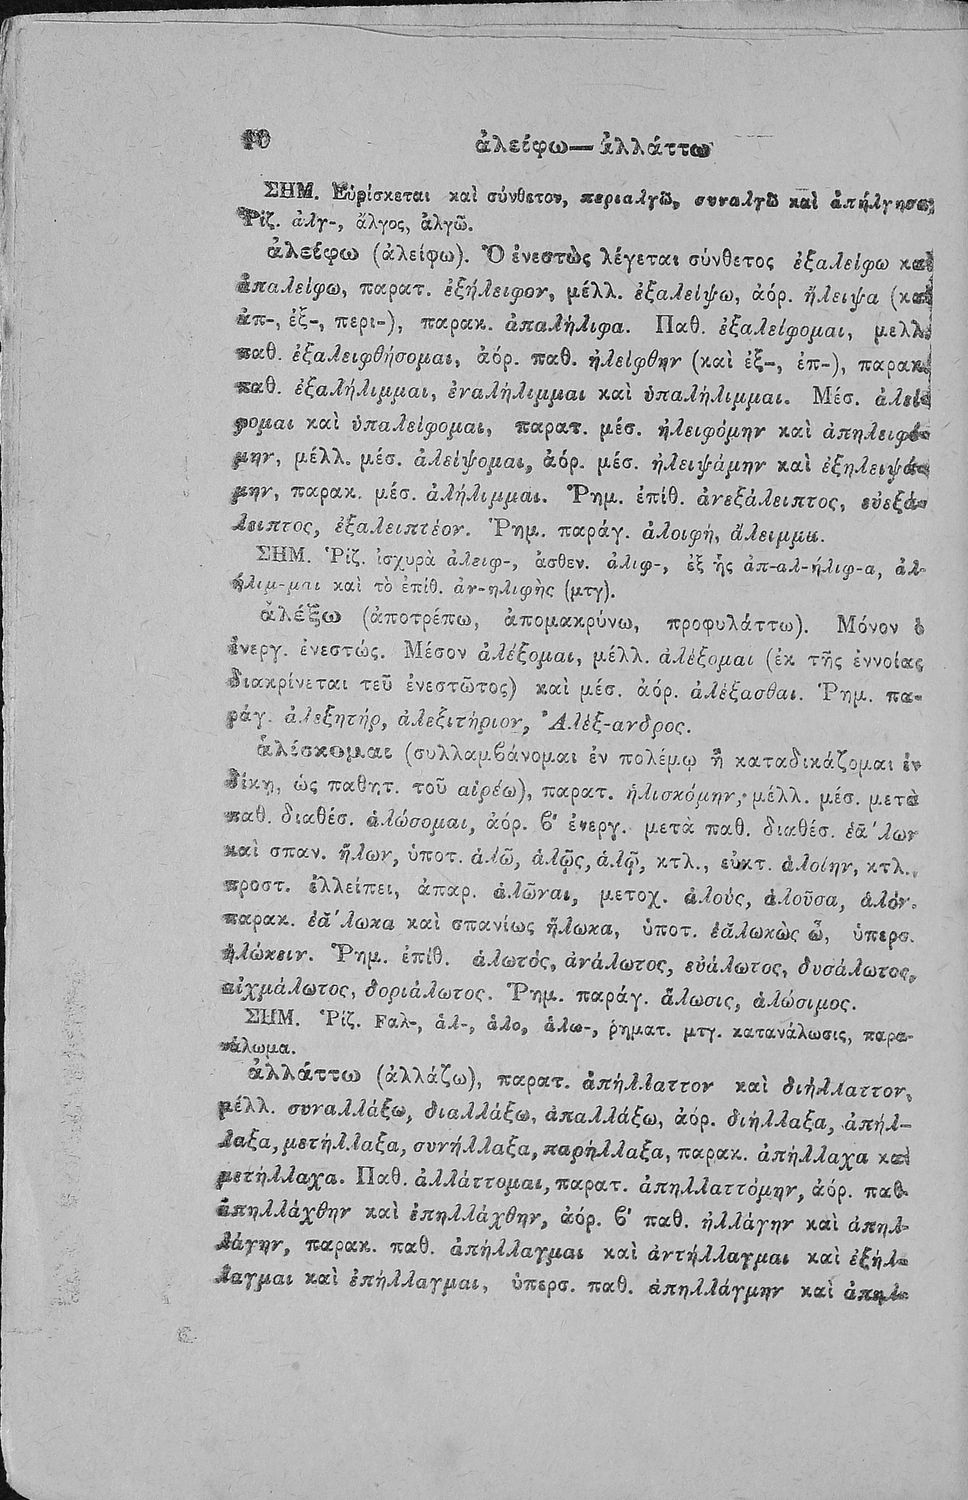 10 ἀλείφω — ἀλλάττω
ΣΗΜ. Εὑρίσκεται καὶ σύνθετον, περιαλγῶ, συναλγῶ καὶ ἀπήλγησα;
Ῥίζ. ἀλγ-, ἄλγος, ἀλγῶ.
ἀλείφω (ἀλείφω). Ὁ ἐνεστὼς λέγεται σύνθετος ἐξαλείφω καὶ
ἀπαλείφω, παρατ. ἐξήλειφον, μέλλ. ἐξαλείψω, ἀόρ. ἤλειψα (καὶ
ἀπ-, ἐξ-, περι-), παρακ. ἀπαλήλιφα. Παθ. ἐξαλείφομαι, μελλ.
παθ. ἐξαλειφθήσομαι, ἀόρ. παθ. ἠλείφθην (καὶ ἐξ-, ἐπ-), παρακ.
παθ. ἐξαλήλιμμαι, ἐναλήλιμμαι καὶ ὑπαλήλιμμαι. Μέσ. ἀλεί-
φομαι καὶ ὑπαλείφομαι, παρατ. μέσ. ἠλειφόμην καὶ ἀπηλειφό-
μην, μέλλ. μέσ. ἀλείψομαι, ἀόρ. μέσ. ἠλειψάμην καὶ ἐξηλειψά-
μην, παρακ. μέσ. ἀλήλιμμαι. Ῥημ. ἐπίθ. ἀνεξάλειπτος, εὐεξά-
λειπτος, ἐξαλειπτέον. Ῥημ. παράγ. ἀλοιφή, ἄλειμμα.
ΣΗΜ. Ῥίζ. ἰσχυρὰ ἀλειφ-, ἀσθεν. ἀλιφ-, ἐξ ἧς ἀπ-αλ-ήλιφ-α, ἀλ-
ήλιμ-μαι καὶ τὸ ἐπίθ. ἀν-ηλιφὴς (μτγ).
ἀλέξω (ἀποτρέπω, ἀπομακρύνω, προφυλάττω). Μόνον ὁ
ἐνεργ. ἐνεστώς. Μέσον ἀλέξομαι, μέλλ. ἀλέξομαι (ἐκ τῆς ἐννοίας
διακρίνεται τοῦ ἐνεστῶτος) καὶ μέσ. ἀόρ. ἀλέξασθαι. Ῥημ. πα-
ράγ. ἀλεξητήρ, ἀλεξιτήριον, Ἀλέξ-ανδρος.
ἁλίσκομαι (συλλαμβάνομαι ἐν πολέμῳ ἢ καταδικάζομαι ἐν
δίκῃ, ὡς παθητ. τοῦ αἱρέω), παρατ. ἡλισκόμην, μέλλ. μέσ. μετὰ
παθ. διαθέσ. ἁλώσομαι, ἀόρ. ϐ' ἐνεργ. μετὰ παθ. διαθέσ. ἑᾱ́λων
καὶ σπαν. ἥλων, ὑποτ. ἁλῶ, ἁλῷς, ἁλῷ, κτλ., εὐκτ. ἁλοίην, κτλ.,
προστ. ἐλλείπει, ἀπαρ. ἁλῶναι, μετοχ. ἁλούς, ἁλοῦσα, ἁλόν.
παρακ. ἑᾱ́λωκα καὶ σπανίως ἥλωκα, ὑποτ. ἑᾱλωκὼς ὦ, ὑπερσ.
ἡλώκειν. Ῥημ. ἐπίθ. ἁλωτός, ἀνάλωτος, εὐάλωτος, δυσάλωτος,
αἰχμάλωτος, δοριάλωτος. Ῥημ. παράγ. ἅλωσις, ἁλώσιμος.
ΣΗΜ. Ῥίζ. Fαλ-, ἁλ-, ἁλο, ἁλω-, ῥηματ. μτγ. κατανάλωσις, παρα-
νάλωμα.
ἀλλάττω (ἀλλάζω), παρατ. ἀπήλλαττον καὶ διήλλαττον,
μέλλ. συναλλάξω, διαλλάξω, ἀπαλλάξω, ἀόρ. διήλλαξα, ἀπήλ-
λαξα, μετήλλαξα, συνήλλαξα, παρήλλαξα, παρακ. ἀπήλλαχα καὶ
μετήλλαχα. Παθ. ἀλλάττομαι, παρατ. ἀπηλλαττόμην, ἀόρ. παθ.
ἀπηλλάχθην καὶ ἐπηλλάχθην, ἀόρ. ϐ' παθ. ἠλλάγην καὶ ἀπηλ-
λάγην, παρακ. παθ. ἀπήλλαγμαι καὶ ἀντήλλαγμαι καὶ ἐξήλ-
λαγμαι καὶ ἐπήλλαγμαι, ὑπερσ. παθ. ἀπηλλάγμην καὶ ἀπηλ-